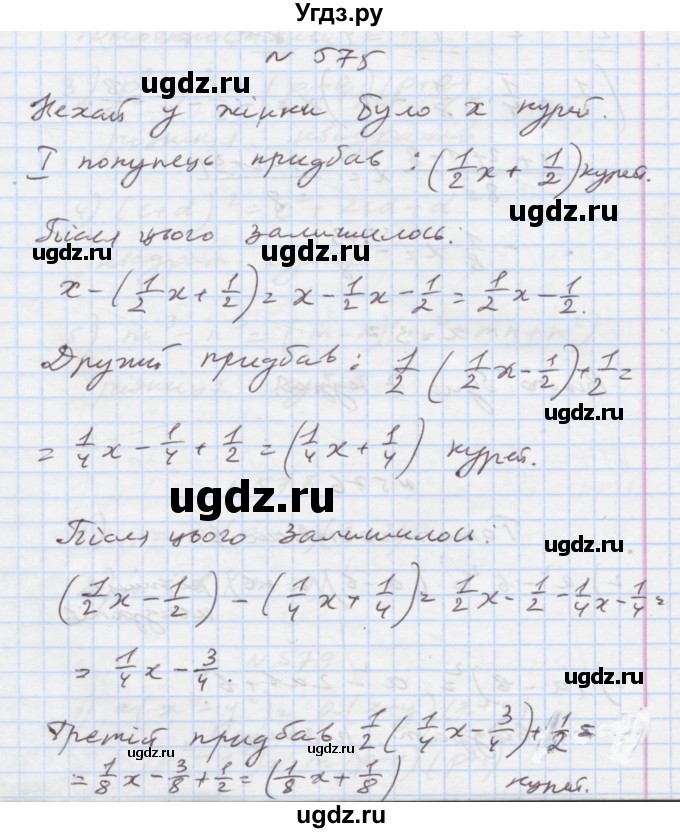 Угдз.ру
N 575
ugdz.ru
Нехай у жінки було x курей.
I покупець придбав: (1/2 x + 1/2) курей.
ugdz.ru ugdz.ru
Після цього залишилось:
ugdz.ru ugdz.ru
x - (1/2 x + 1/2) = x - 1/2 x - 1/2 = 1/2 x - 1/2.
Другий придбав: 1/2 (1/2 x - 1/2) + 1/2 =
ugdz.ru
= 1/4 x - 1/4 + 1/2 = (1/4 x + 1/4) курей.
ugdz.ru
Після цього залишилось:
ugdz.ru
(1/2 x - 1/2) - (1/4 x + 1/4) = 1/2 x - 1/2 - 1/4 x - 1/4 =
= 1/4 x - 3/4.
ugdz.ru
Третій придбав 1/2 (1/4 x - 3/4) + 1/2 =
ugdz.ru
= 1/8 x - 3/8 + 1/2 = (1/8 x + 1/8) курей.
ugdz.ru